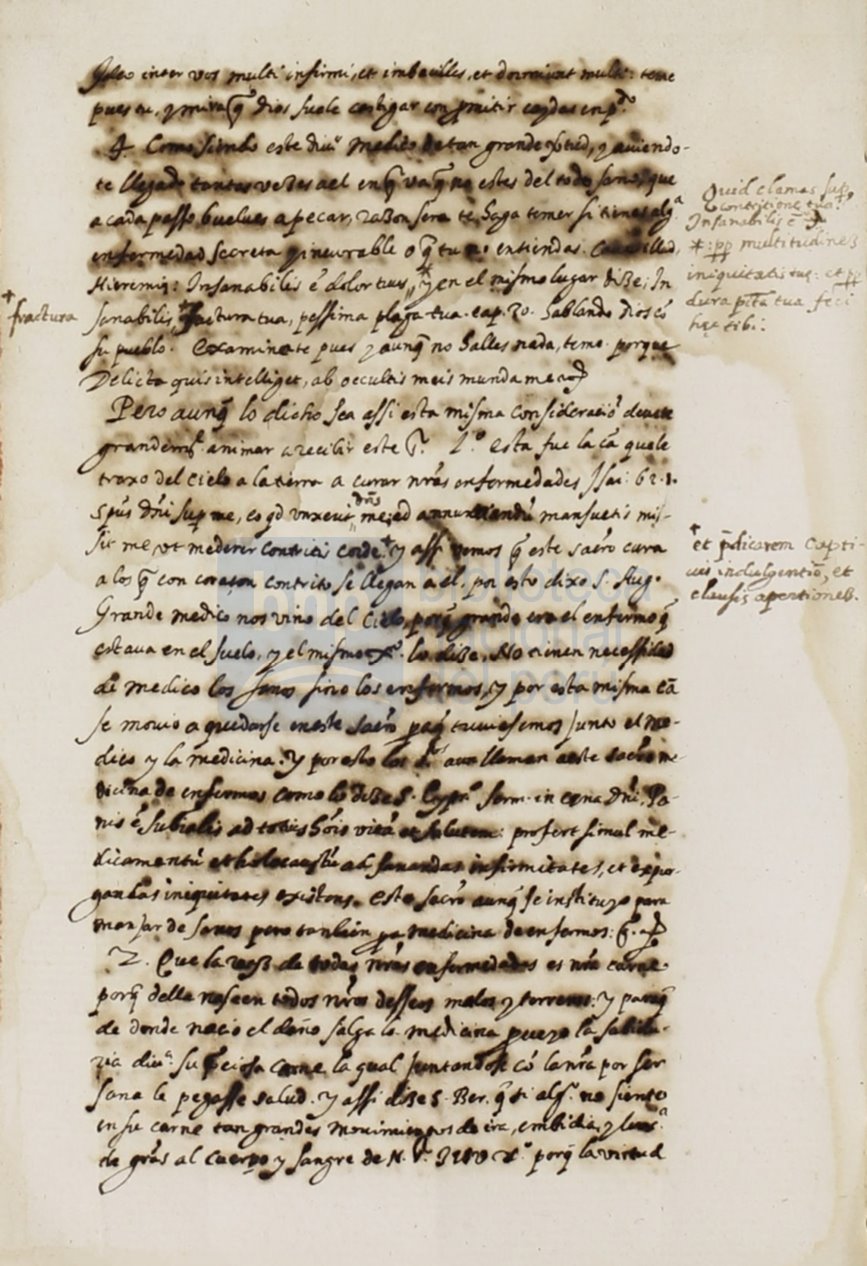 Ideo inter vos multi infirmi, et imbecilles, et dormiunt multi: teme
pues tu, y mira q̃ Dios suele castigar con pmitir caydas en p.do
4. Como siendo este diu.o medico de tan grande virtud, y auiendo-
te llegado tantas vezes a el en q̃ va q̃ no estes del todo sano, y que
a cada passo buelues a pecar, razon sera te haga temer si tienes alg.a
enfermedad secreta y incurable o q̃ tu no entiendas.
Hieremię: Insanabilis ẽ dolor tuus, y en el mismo lugar dize: In
sanabilis fractura tua, pessima plaga tua. cap. 30. hablando Dios cõ
su pueblo. Examinate pues y aunq̃ no halles nada, teme porque
Delicta quis intelliget, ab occultis meis munda me
Pero aunq̃ lo dicho sea assi esta misma consideraciõ deue
grandem.te animar a recibir este s.r 1.o esta fue la cã que le
traxo del cielo a la tierra a curar nr̃as enfermedades Isai: 62. 1.
Spũs Dñi sup me, eo qd vnxerit dñs me, ad annuntiandũ mansuetis mi-
sit me, vt mederer contritis corde. Y assi vemos q̃ este sacro cura
a los q̃ con coraçon contrito se llegan a el. por esto dixo S. Aug.
Grande medico nos vino del Cielo, porq̃ grande era el enfermo q̃
estaua en el suelo, y el mismo X.o lo dize, No tienen necessidad
de medico los sanos sino los enfermos, y por esta misma cã
se mouio a quedarse en este Sacro paq̃ tuuiesemos junto el me-
dico y la medicina. Y por esto los s.tos llaman a este sacro me-
dicina de enfermos como lo dize S. Cypr.o serm. in cena Dñi, Pa-
nis ẽ substalis ad totius hõis vitã et salutem: profert simul me-
dicamentũ et holocaustũ ad sanandas infirmitates, et expur-
gandas iniquitates existens. Este sacro aunq̃ se instituyo para
manjar de sanos pero tambien pa medicina de enfermos:
2. Que la raiz de todas nr̃as enfermedades es nr̃a carne
porq̃ della nascen todos nr̃os desseos malos y terrenos: Y paraq̃
de donde nacio el daño salga la medicina proueyo la sabidu-
ria diu.a su preciosa carne la qual juntandose cõ la nr̃a por ser
sana le pegasse salud. Y assi dize S. Ber. q̃ si alg.o no siente
en su carne tan grandes mouimientos de ira, embidia, y luxs.a
de grãs al cuerpo y sangre de N. S.r IESV X.o porq̃ la virtud
+
fractura
Quid clamas sup
contritione tua?
Insanabilis ẽ
+: pp multitudinẽ
iniquitatis tuę: et pp
dura pctã tua feci
hęc tibi:
+
et p̃dicarem capti-
uis indulgentiã, et
clausis apertionem.